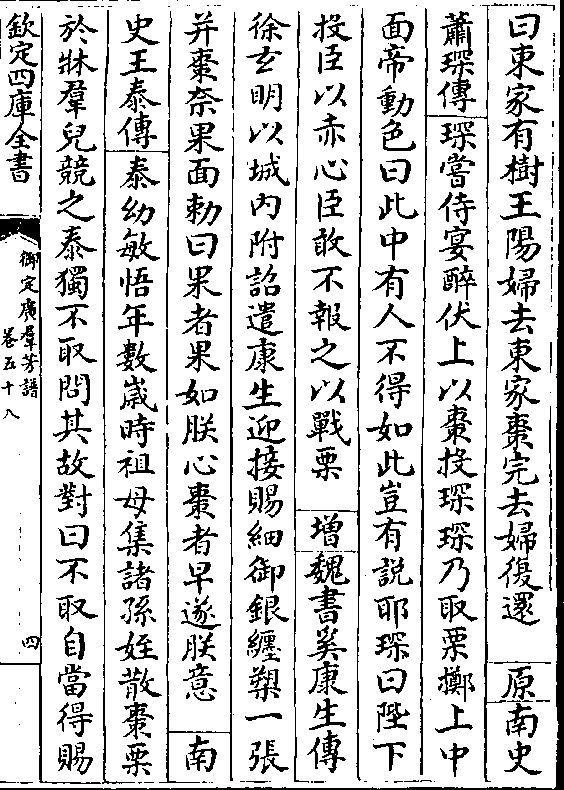 曰東家有樹王陽婦去東家棗完去婦復還　原南史
蕭琛傳琛嘗侍宴醉伏上以棗投琛琛乃取栗擲上中
面帝動色曰此中有人不得如此豈有說耶琛曰陛下
投臣以赤心臣敢不報之以戰栗　增魏書奚康生傳
徐玄明以城內附詔遣康生迎接賜細御銀纏槊一張
并棗奈果面勅曰果者果如朕心棗者早遂朕意　南
史王泰傳泰幼敏悟年數嵗時祖母集諸孫姪散棗栗
於牀羣兒競之泰獨不取問其故對曰不取自當得賜
欽定四庫全書
御定廣羣芳譜
卷五十八
四